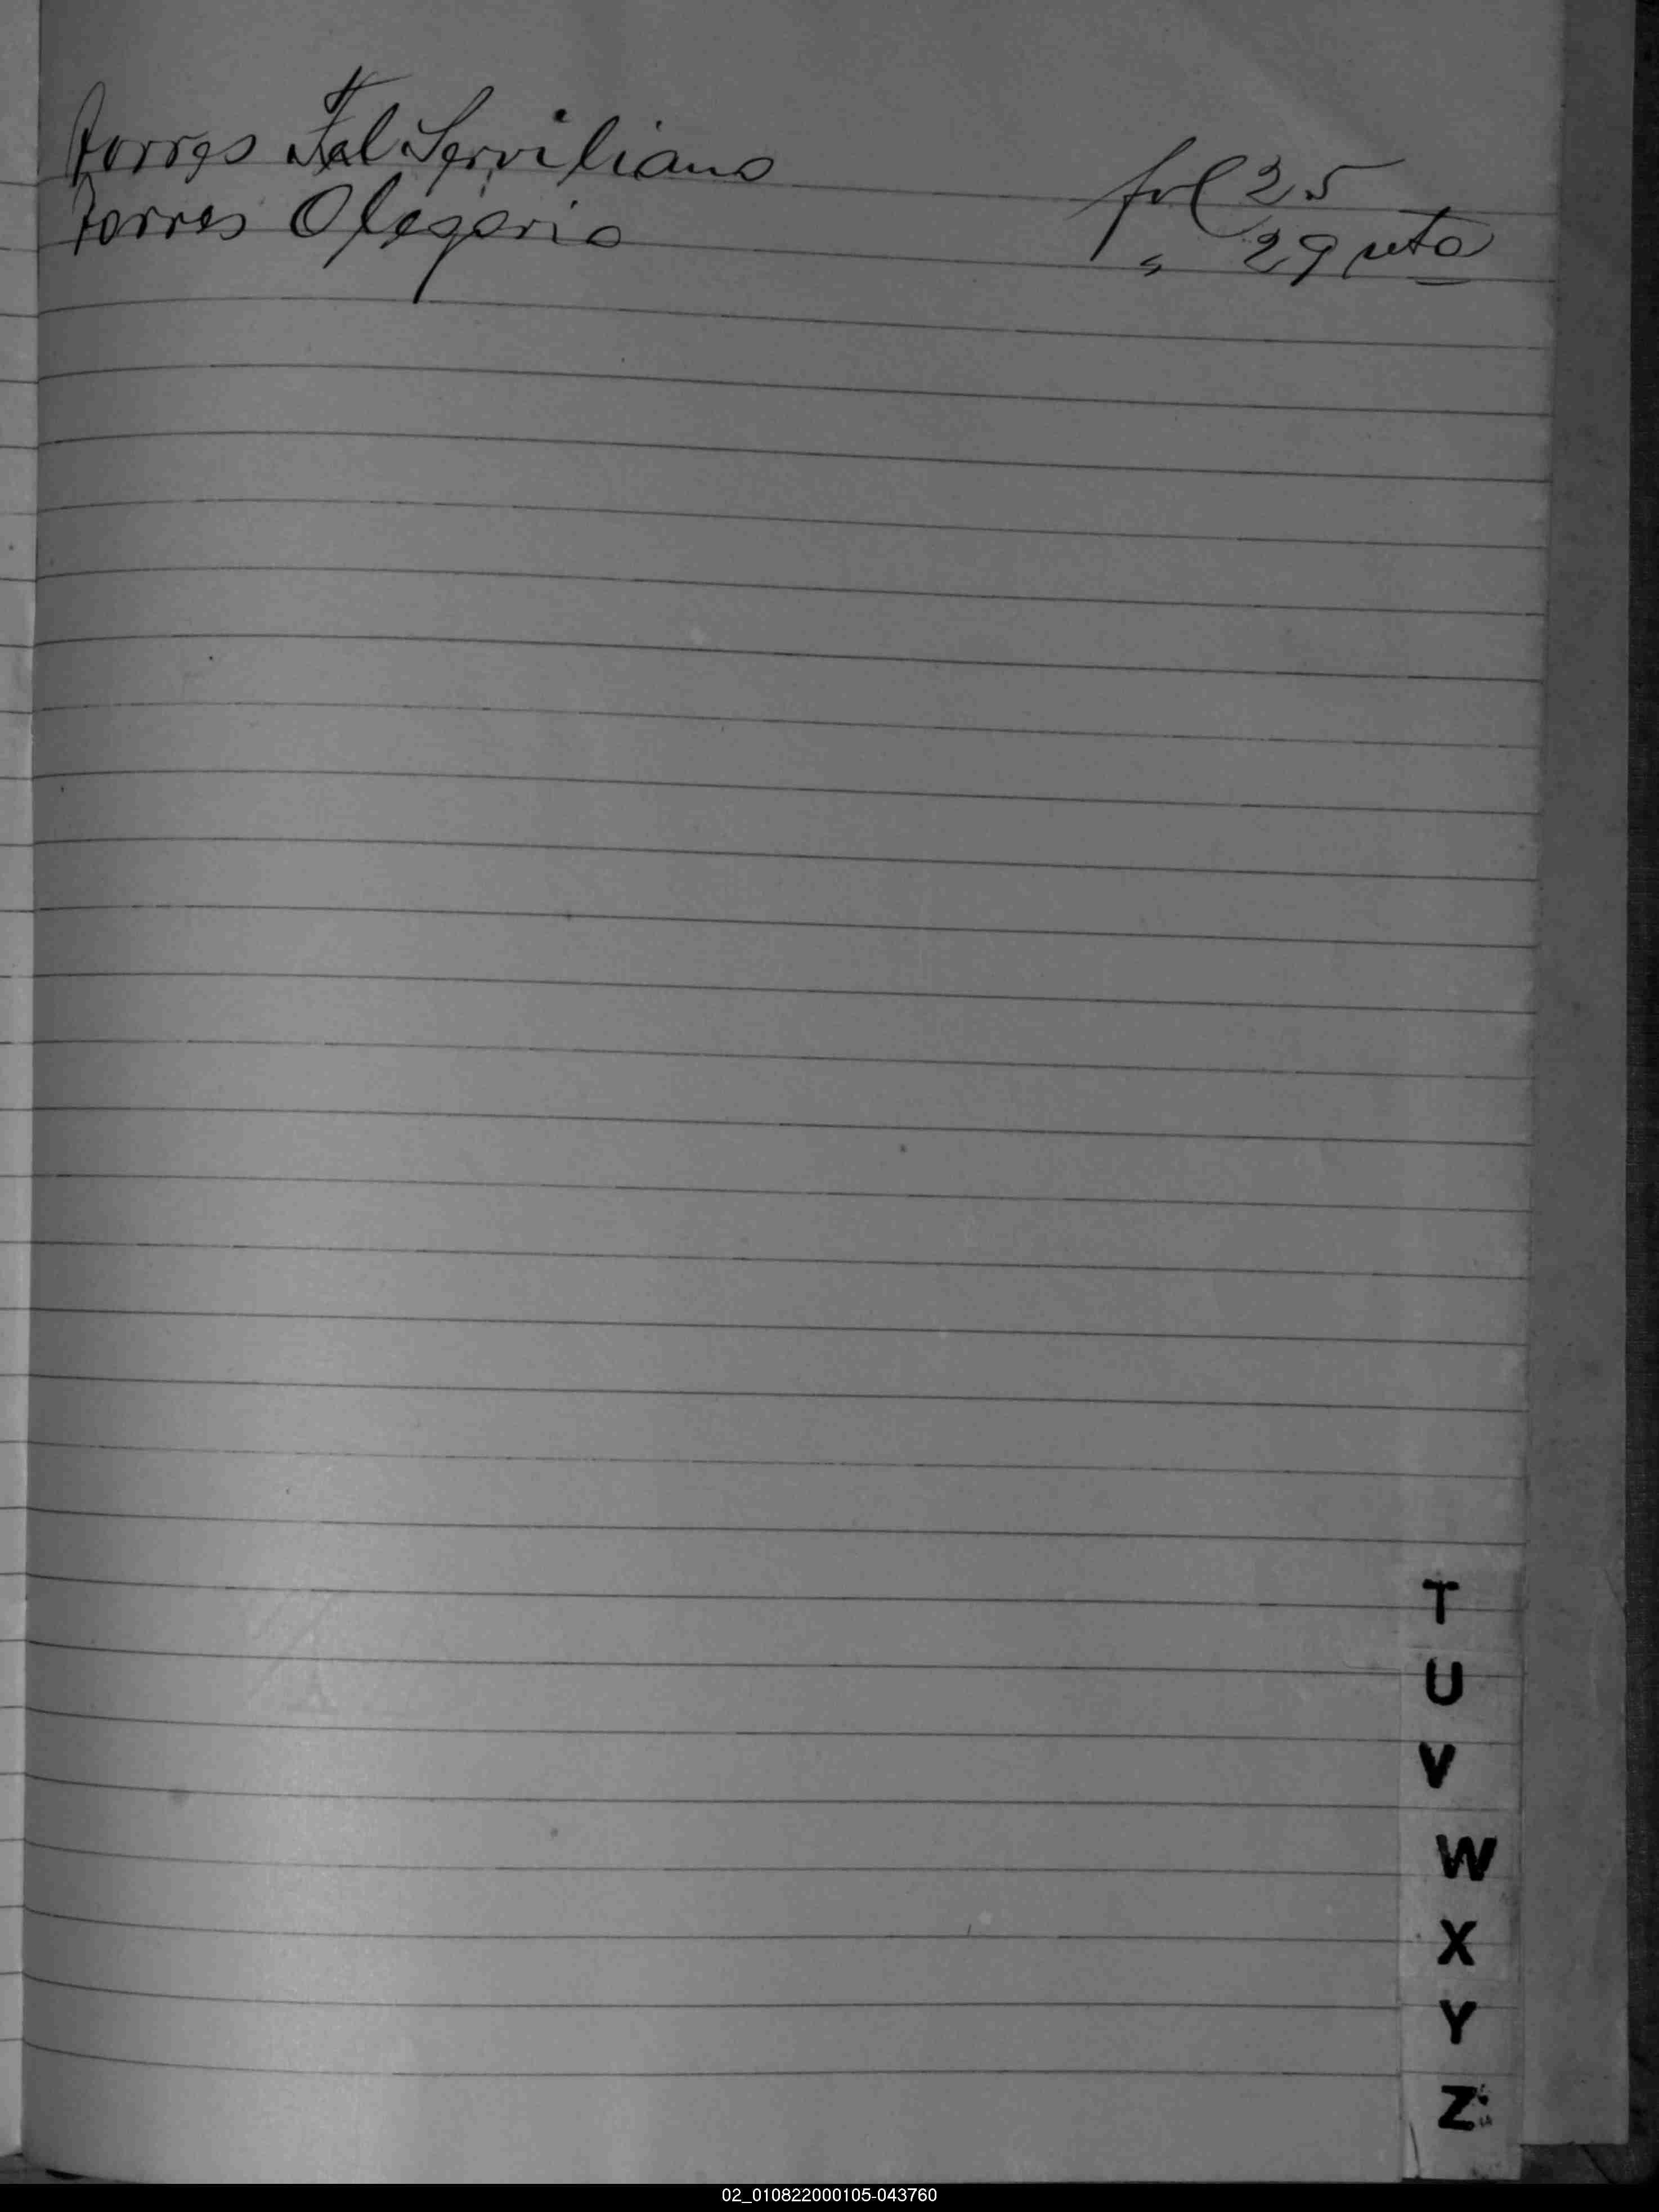 Torres Fal Serviliano fol 25
Torres Olegario " 29 vto
T
U
V
W
X
Y
Z
02_010822000105-043760